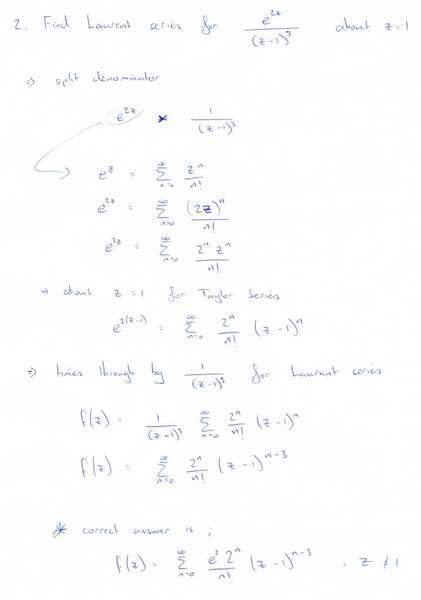 2. Find Laurent series for e^{2z}/(z-1)^3 about z=1
⇒ split denominator
e^{2z} * 1/(z-1)^3
e^z = ∑_{n=0}^{∞} z^n/n!
e^{2z} = ∑_{n=0}^{∞} (2z)^n/n!
e^{2z} = ∑_{n=0}^{∞} 2^n z^n/n!
→ about z=1 for Taylor series
e^{2(z-1)} = ∑_{n=0}^{∞} 2^n/n! (z-1)^n
⇒ times through by 1/(z-1)^3 for Laurant series
f(z) = 1/(z-1)^3 ∑_{n=0}^{∞} 2^n/n! (z-1)^n
f(z) = ∑_{n=0}^{∞} 2^n/n! (z-1)^{n-3}
* correct answer is ;
f(z) = ∑_{n=0}^{∞} e^2 2^n/n! (z-1)^{n-3} , z ≠ 1